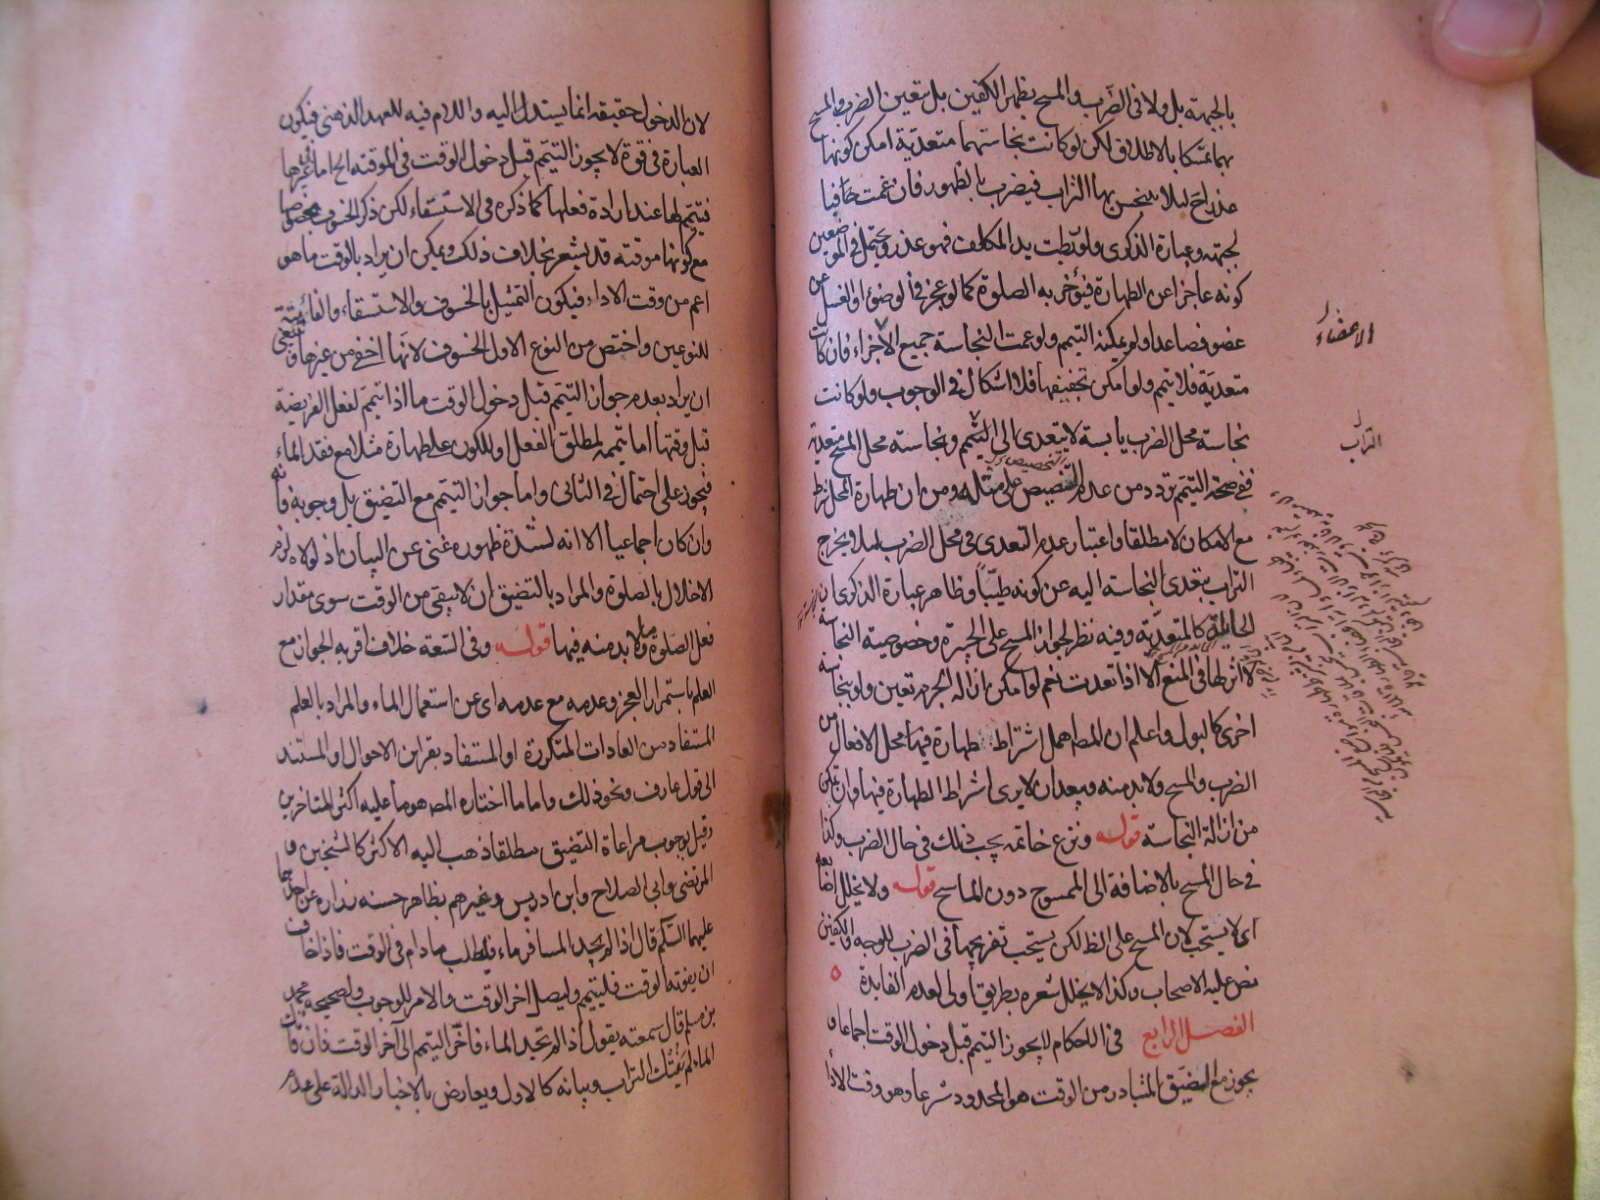 بالجبهة بل ولا فى الضرب والمسح بظهر الكفين بل يتعين الضرب والمسح
بهما تمسكا بالاطلاق لكن لو كانت نجاستهما متعدية امكن كونها
عذرا آخر ليلا ينجس بها التراب فيضرب بالظهور فان عمت
لجبهته وعبارة الذكرى ولو قطعت يد المكلف فهو عذر ويحتمل فى الموضعين
كونه عاجزا عن الطهارة فيؤخر به الصلوة كما لو عجز فى الوضوء او الغسل عن
عضو فصاعدا ولو يمكنه التيمم ولو عمت النجاسة جميع الاجزاء فان كانت
متعدية فلا تيمم ولو امكن تجفيفها فلا اشكال فى الوجوب ولو كانت
نجاسة محل الضرب يابسة لا يتعدى الى التيمم ونجاسة محل المسح متعدية
ففى صحة التيمم تردد من عدم التنصيص على مثله ومن ان طهارة المحل شرط
مع الامكان لا مطلقا واعتبار عدم التعدى فى محل الضرب ليلا يخرج
التراب بتعدى النجاسة اليه عن كونه طيبا وظاهر عبارة الذكرى ان
الحايلة كالمتعدية وفيه نظر لجواز المسح على الجبيرة وخصوصية النجاسة
لا اثر لها فى المنع الا اذا تعدت نعم لو امكن ازالة الجرم تعين ولو بنجاسة
اخرى كالبول واعلم ان المصـ اهمل اشتراط طهارة فيها محل الافعال من
الضرب والمسح ولا بد منه ويبعد ان لا يرى اشتراط الطهارة فيها وان تمكن
من ازالة النجاسة قوله ونزع خاتمه يجب ذلك فى حال الضرب وكذا
فى حال المسح بالاضافة الى الممسوح دون الماسح قوله ولا يخلل اصابعه
اى لا يستحب لان المسح على الظ لكن يستحب تفريجها فى الضرب للوجه والكفين
نص عليه الاصحاب وكذا لا يخلل شعره بطريق اولى لعدم الفايدة ٥
الفصل الرابع فى الاحكام لا يجوز التيمم قبل دخول الوقت اجماعا و
يجوز مع التضيق المتبادر من الوقت هو المحدود شرعا وهو وقت الادا
الاعضاء
التراب
لان الدخول حقيقة انما يستدل اليه واللام فيه للعهد الذهنى فيكون
العبارة فى قوة لا يجوز التيمم قبل دخول الوقت فى الموقتة الخ اما فى غيرها
فيتيمم لها عند ارادة فعلها كما ذكره فى الاستسقاء لكن ذكر الخسوف بخصوصها
مع كونها موقتة قد يشعر بخلاف ذلك ويمكن ان يراد بالوقت ما هو
اعم من وقت الاداء فيكون التمثيل بالخسوف والاستسقاء والفائتة
للنوعين واختص من النوع الاول الخسوف لانها اخفى من غيرها وينبغى
ان يراد بعدم جواز التيمم قبل دخول الوقت ما اذا تيمم لفعل الفريضة
قبل وقتها اما يتممه لمطلق الفعل او للكون على طهارة مثلا مع فقد الماء
فيجوز على احتمال فى الثانى واما جواز التيمم مع التضيق بل وجوبه فانه
وان كان اجماعيا الا انه لشدة ظهوره غنى عن البيان اذ لولاه لزم
الاخلال بالصلوة والمراد بالتضيق ان لا يبقى من الوقت سوى مقدار
فعل الصلوة وما لا بد منه فيها قوله وفى السعة خلاف اقربه الجواز مع
العلم باستمرار العجز وعدمه مع عدمه اى عن استعمال الماء والمراد بالعلم
المستفاد من العادات المتكررة او المستفاد بقراين الاحوال او المستند
الى قول عارف ونحو ذلك واما ما اختاره المصـ هو ما عليه اكثر المتاخرين
وقيل بوجوب مراعاة التضيق مطلقا ذهب اليه الاكثر كالشيخين و
المرتضى وابى الصلاح وابن ادريس وغيرهم بظاهر حسنة زرارة عن احدهما
عليهما السلم قال اذا لم يجد المسافر ماء فليطلب ما دام فى الوقت فاذا خاف
ان يفوته الوقت فليتيمم وليصل آخر الوقت والامر للوجوب ولصحيحة محمد
بن مسلم قال سمعته يقول اذا لم تجد الماء فاخر التيمم الى آخر الوقت فان فاتك
الماء لم يفتك التراب وبيانه كالاول ويعارض بالاخبار الدالة على عدم